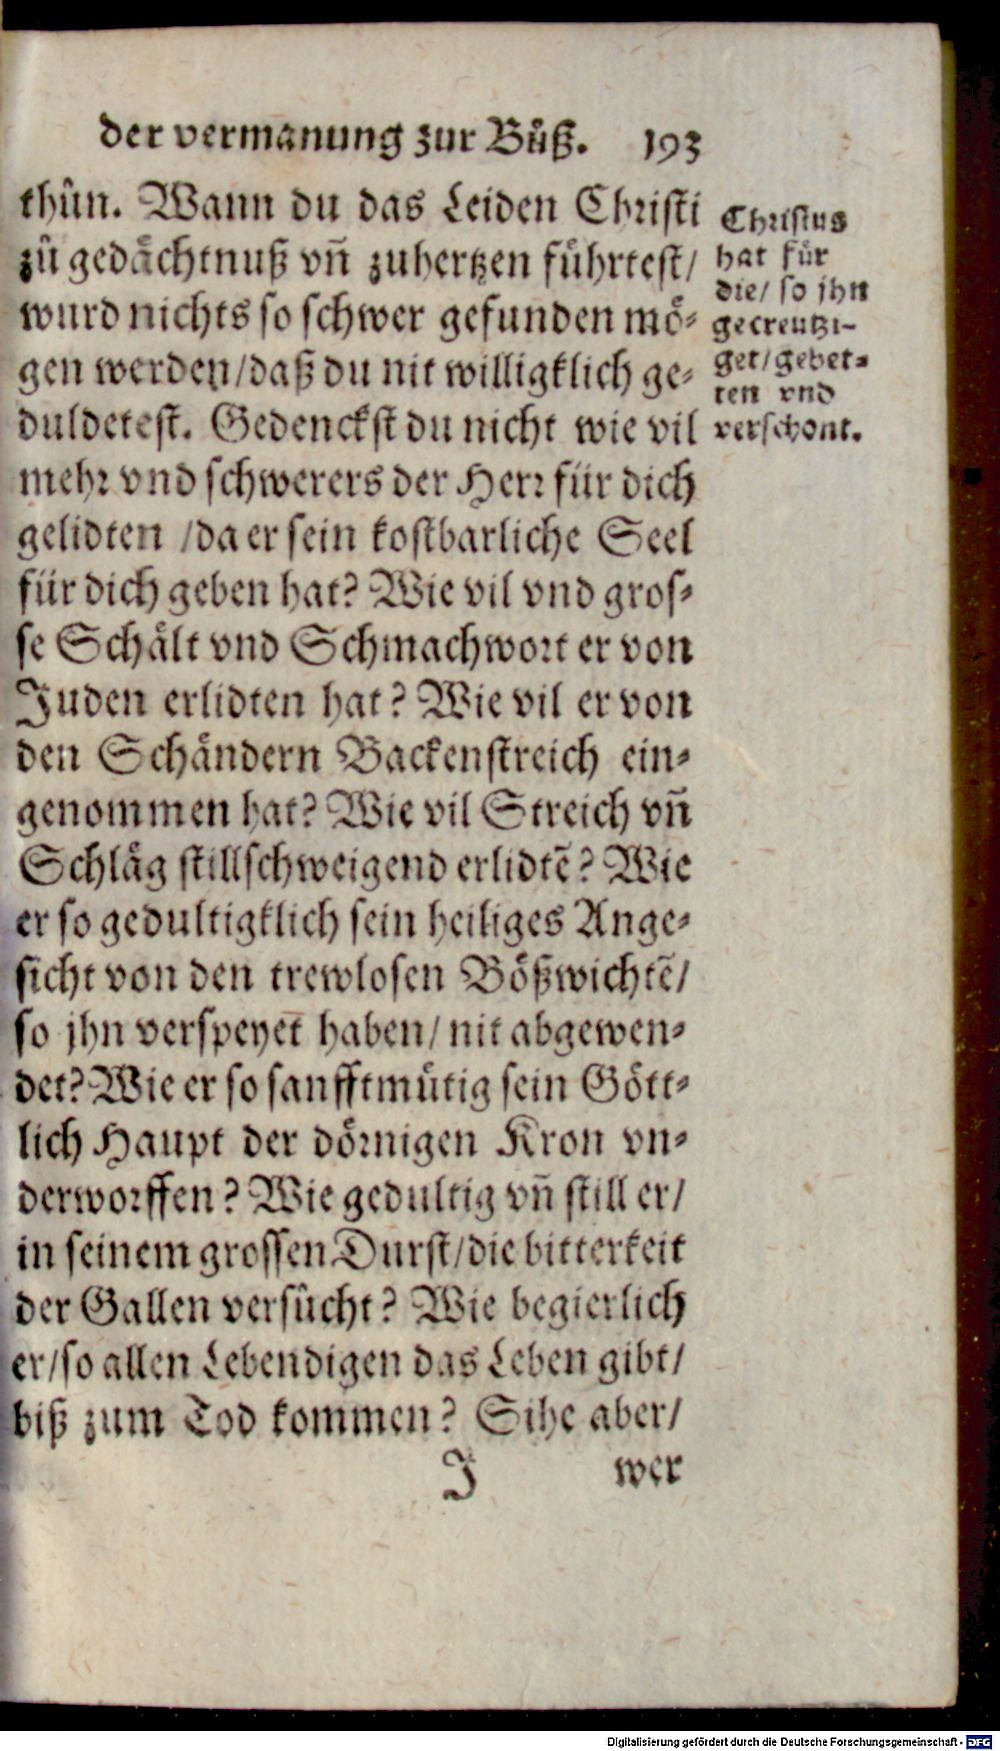 der vermanung zur Bůß. 193
thůn. Wann du das Leiden Christi
zů gedächtnuß vñ zuhertzen führtest/
wurd nichts so schwer gefunden mö-
gen werden/daß du nit willigklich ge-
duldetest. Gedenckst du nicht wie vil
mehr vnd schwerers der Herr für dich
gelidten /da er sein kostbarliche Seel
für dich geben hat? Wie vil vnd gros-
se Schält vnd Schmachwort er von
Juden erlidten hat? Wie vil er von
den Schändern Backenstreich ein-
genommen hat? Wie vil Streich vñ
Schläg stillschweigend erlidtē? Wie
er so gedultigklich sein heiliges Ange-
sicht von den trewlosen Bößwichtē/
so jhn verspeyet haben/ nit abgewen-
det? Wie er so sanfftmütig sein Gött-
lich Haupt der dörnigen Kron vn-
derworffen? Wie gedultig vñ still er/
in seinem grossen Durst/die bitterkeit
der Gallen versůcht? Wie begierlich
er/so allen Lebendigen das Leben gibt/
biß zum Tod kommen? Sihe aber/
J wer
Christus
hat für
die/ so jhn
gecreutzi-
get/gebet-
ten vnd
verschont.
Digitalisierung gefördert durch die Deutsche Forschungsgemeinschaft - DFG